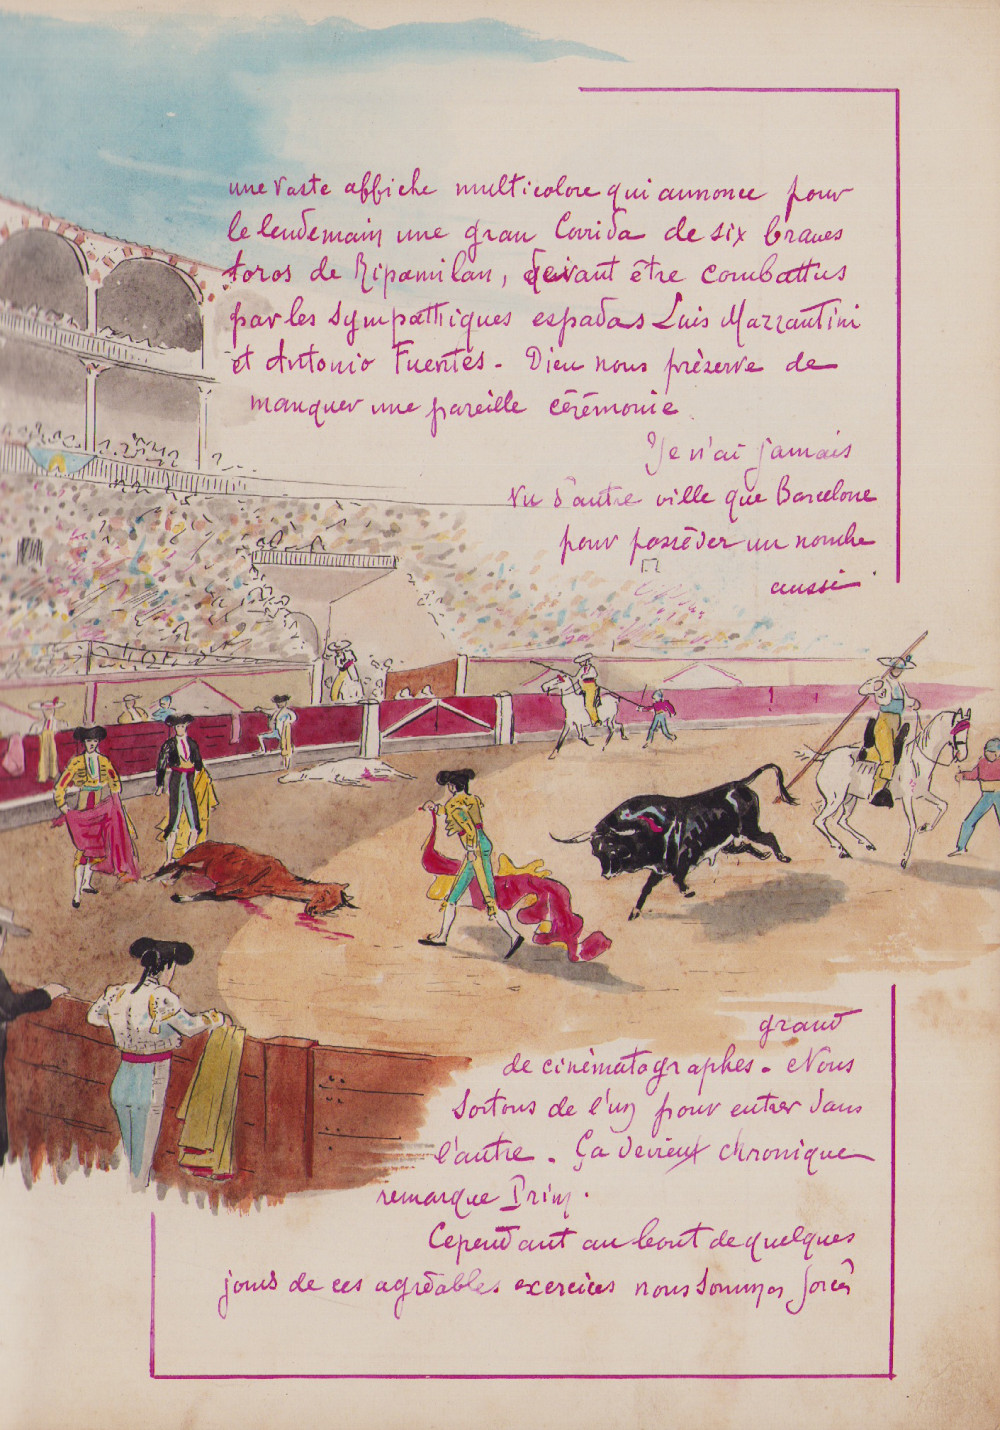 une vaste affiche multicolore qui annonce pour
le lendemain une gran Corrida de six braves
toros de Ripamilan, devant être combattus
par les sympathiques espadas Luis Mazzantini
et Antonio Fuentés - Dieu nous préserve de
manquer une pareille cérémonie
Je n'ai jamais
vu d'autre ville que Barcelone
pour posséder un nombre
aussi
grand
de cinématographes. Nous
sortons de l'un pour entrer dans
l'autre. Ça devient chronique
remarque Prim.
Cependant au bout de quelques
jours de ces agréables exercices nous sommes forcés